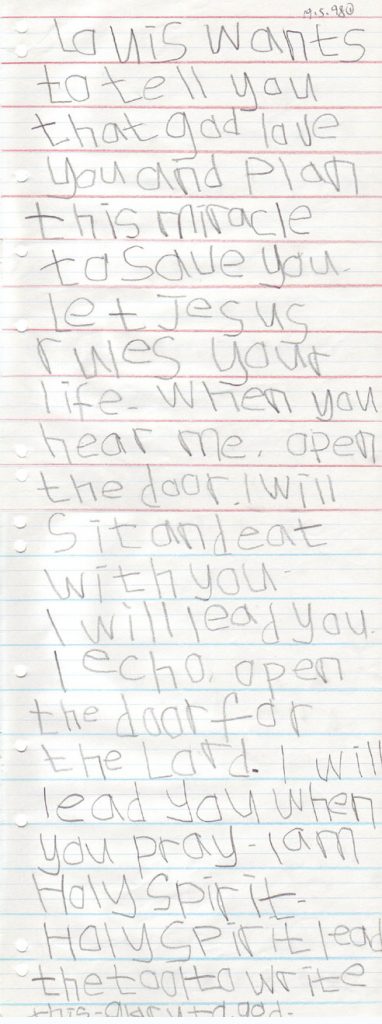 19.5.98 ①
Louis wants
to tell you
that god love
you and plan
this miracle
to save you.
Let Jesus
rules your
life. When you
hear me, open
the door. I will
Sit and eat
with you.
I will lead you.
I echo, open
the door for
the Lord. I will
lead you when
you pray-I am
Holy Spirit.
Holy Spirit lead
the tool to write
this-glory to god.